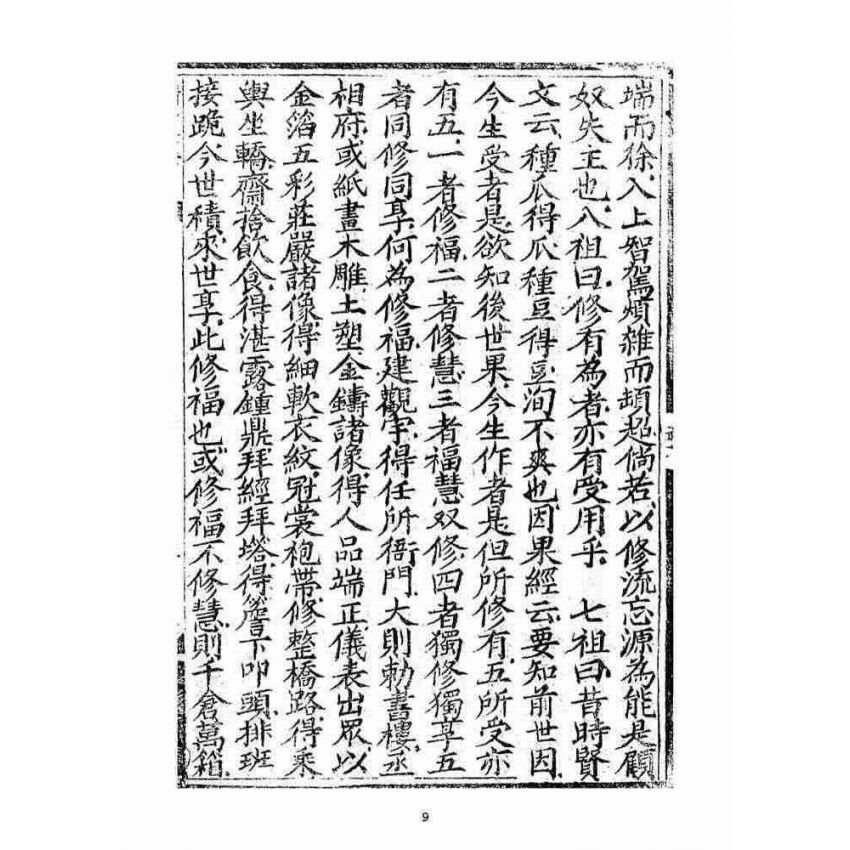 端而徐、入上智駕煩雜而頓超倘若、以修流忘源為能是顧
奴失主也、八祖曰、修有為者、亦有受用乎、 七祖曰、昔時賢
文云、種瓜得瓜、種豆得豆洵不爽也、因果經云、要知前世因、
今生受者是、欲知後世果、今生作者是、但所修有五、所受亦
有五、一者修福、二者修慧、三者福慧双修、四者獨修獨享、五
者同修同享、何為修福、建觀宇、得任所衙門、大則勅書樓、丞
相府、或紙畫木雕、土塑、金鑄諸像、得人品端正、儀表出眾、以
金箔五彩莊嚴諸像、得細軟衣紋、冠裳袍帶、修整橋路、得乘
輿坐轎、齋捨飲食、得湛露鍾鼎、拜經拜塔、得簷下叩頭、排班
接跪、今世積、來世享、此修福也、或修福不修慧、則千倉萬箱、
9